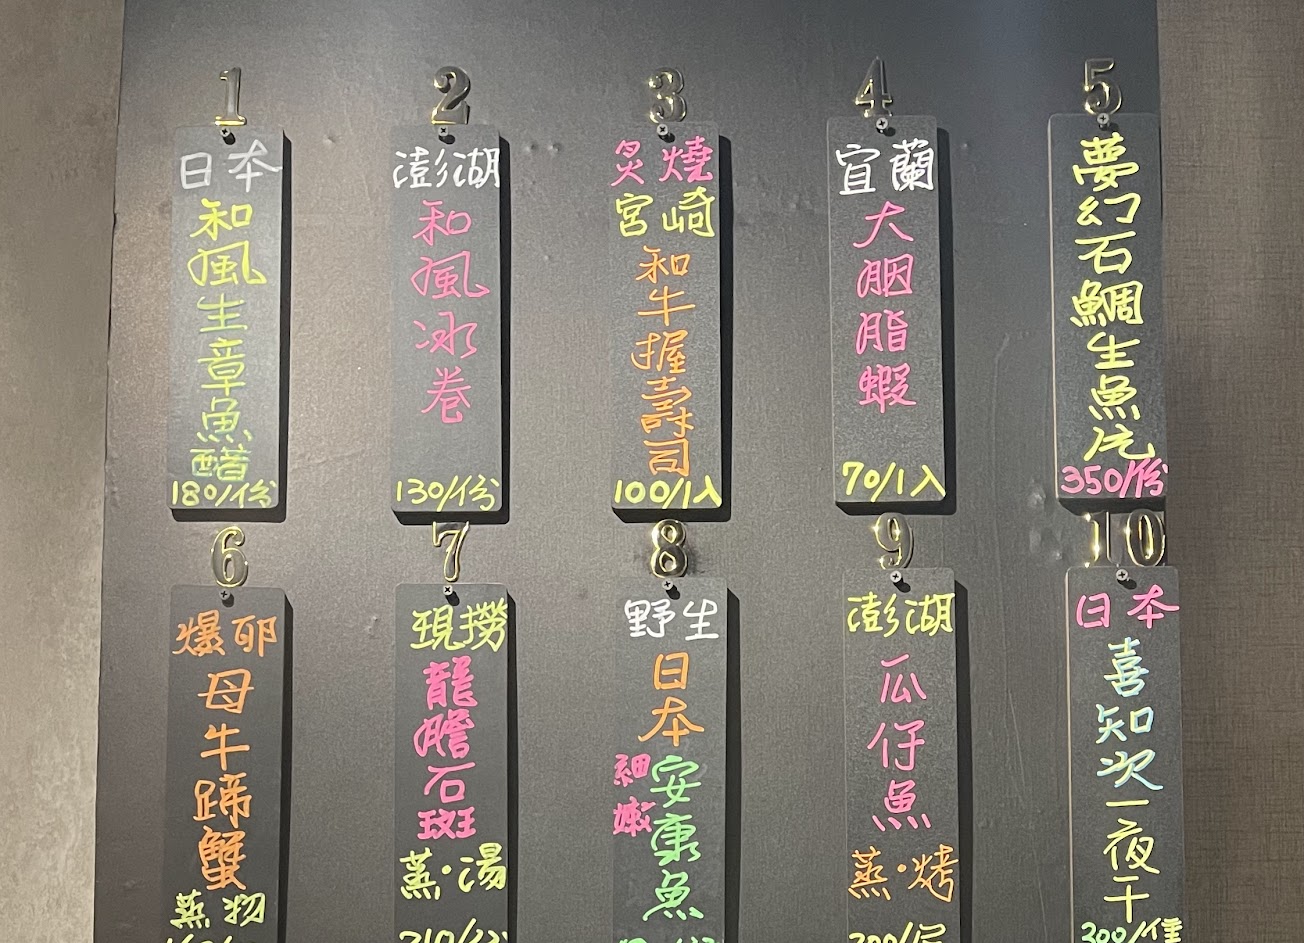 1
日本
和風生章魚醋
180/份
2
澎湖
和風冰卷
130/份
3
炙燒
宮崎
和牛握壽司
100/1入
4
宜蘭
大胭脂蝦
70/1入
5
夢幻石鯛生魚片
350/份
6
爆卵
母牛蹄蟹
蒸物
7
現撈
龍膽石斑
蒸·湯
210/份
8
野生
日本
細嫩
安康魚
9
澎湖
瓜仔魚
蒸·烤
200/尾
10
日本
喜知次一夜干
300/隻